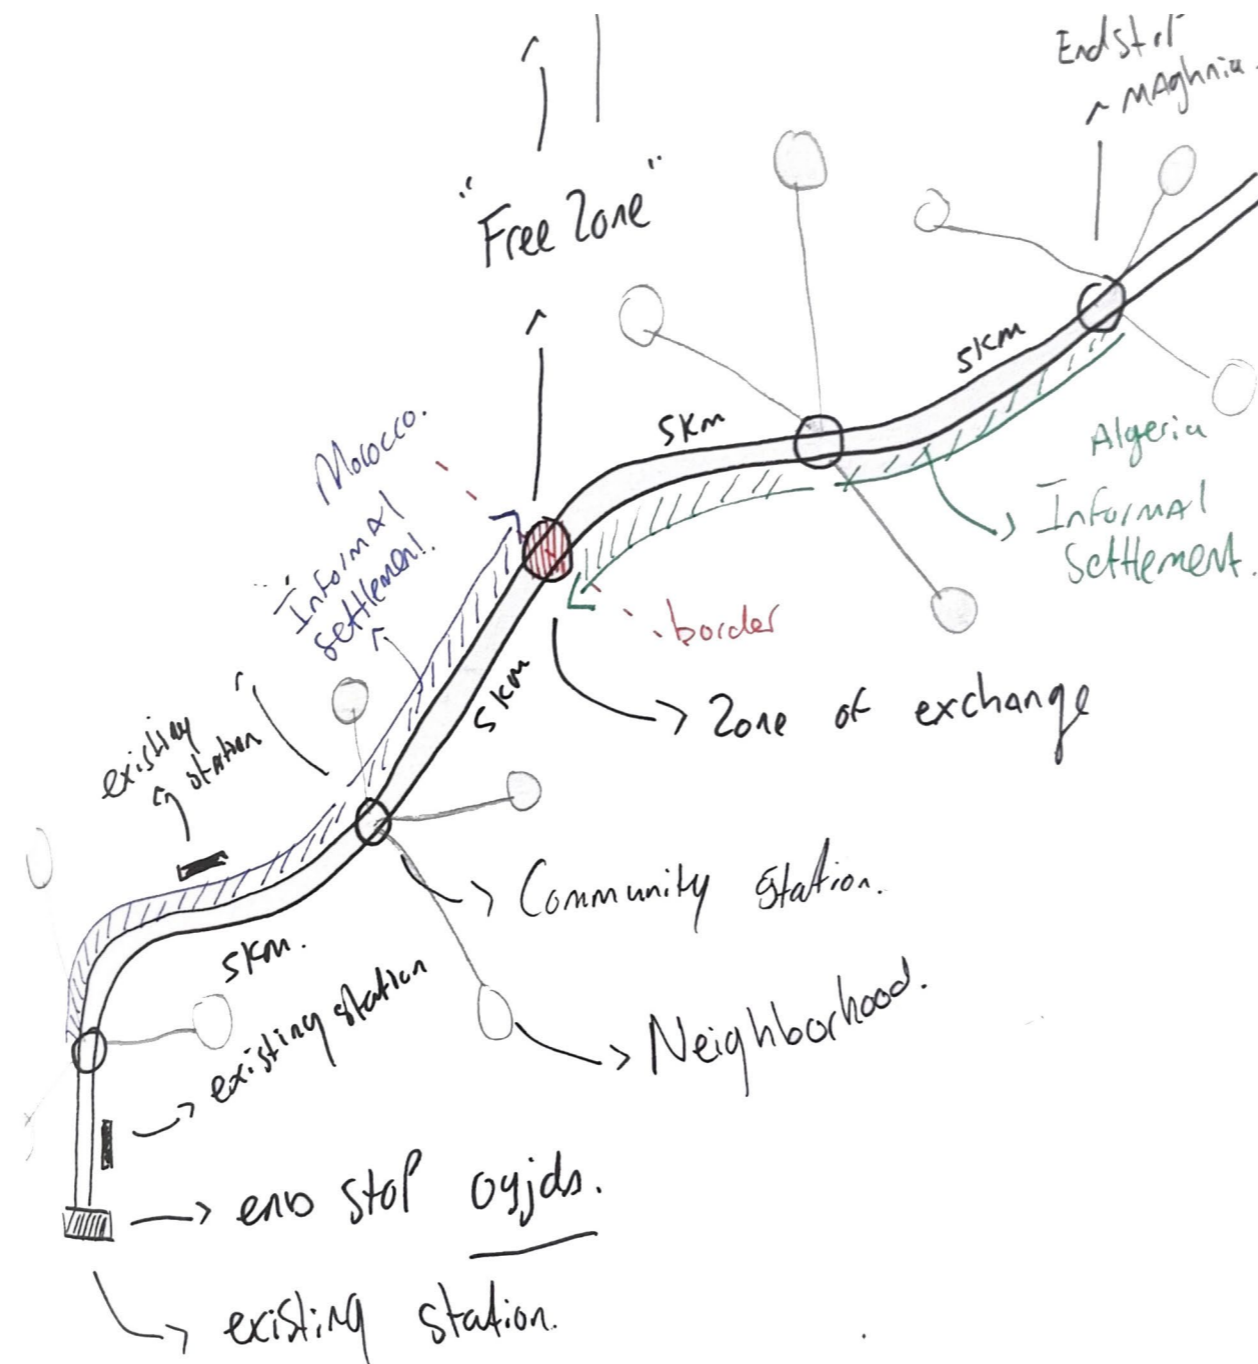 End stop
MAghnia.
"Free Zone"
5km
5km
Morocco.
Informal
settlement.
Algeria
Informal
Settlement.
border
Zone of exchange
5km
existing
station
Community station.
5km.
existing station
Neighborhood.
end stop oujda.
existing station.